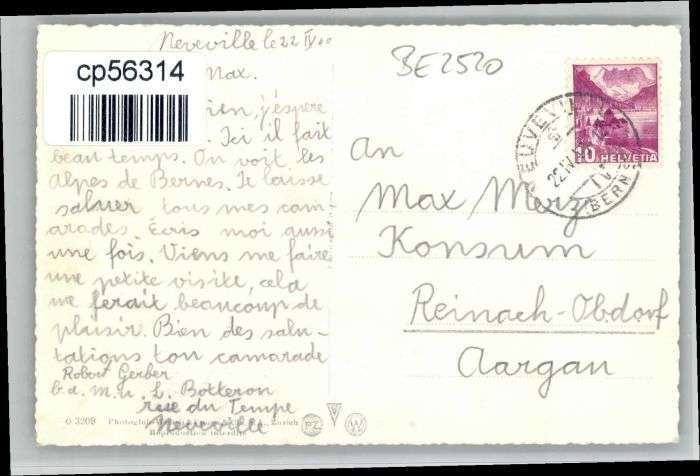 Neveville le 22 IV
BE2520
cp56314
Max.
ien, j'éspere
Ici il fait
beau temps. On voit les
Alpes de Bernes. Je laisse
saluer tous mes cam
arades. Écris moi aussi
une fois. Viens me faire
une petite visite, cela
me ferait beaucoup de
plaisir. Bien des salu-
tations ton camarade
Robert Gerber
b.a. M. L. Botteron
rue du Tempe
Neveville
An
Max Merz
Konsum
Reinach-Obdorf
Aargau
10 HELVETIA
NEUVEVILLE
22.IV
(BERN)
O 3209 Photoglob Zürich
Reproduction interdite
PZ
W